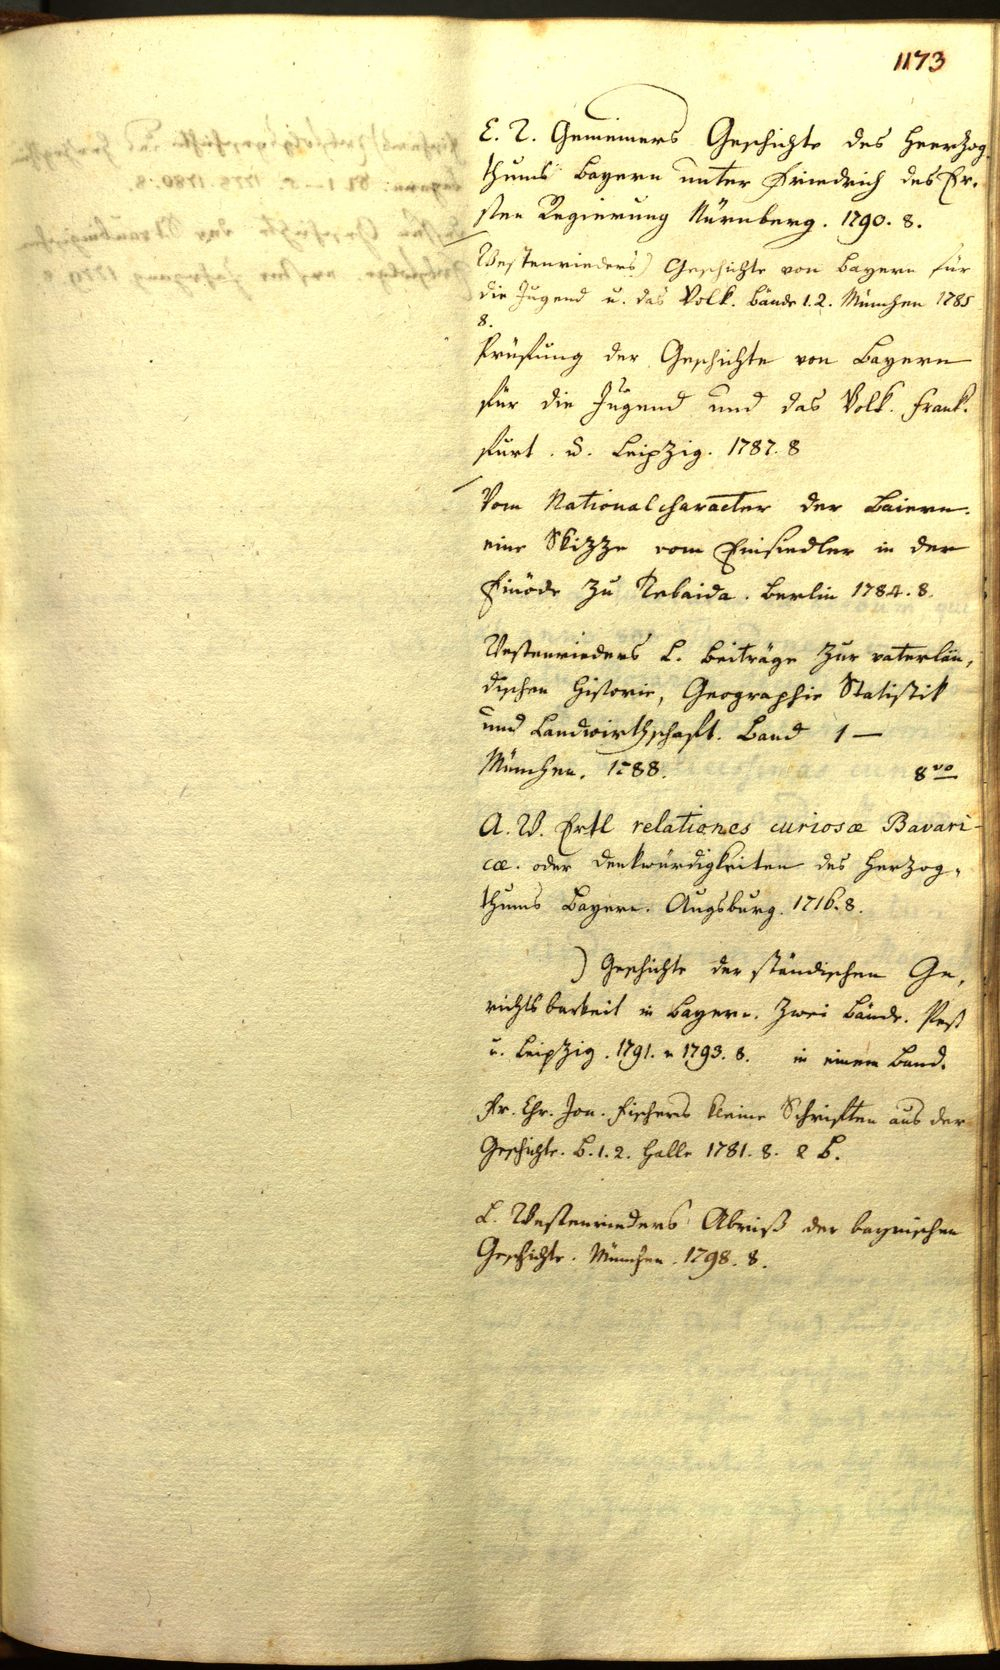 1173
C. T. Gemeiners Geschichte des Herzog
thums Bayern unter Friedrich des Er-
sten Regierung Nürnberg. 1790. 8.
Westenrieders) Geschichte von Bayern für
die Jugend u. das Volk. Bände 1. 2. München 1785
8.
Prüfung der Geschichte von Bayern
für die Jugend und das Volk. Frank-
furt. u. Leipzig. 1787. 8
Vom Nationalcharacter der Baiern.
eine Skizze vom Einsiedler in der
Einöde zu Rebaida. Berlin 1784. 8.
Westenrieders L. Beiträge zur vaterlän-
dischen Historie, Geographie Statistik
und Landwirthschaft. Band 1 —
München. 1788. 8vo
A. W. Ertl relationes curiosæ Bavari-
cæ. oder Denkwürdigkeiten des Herzog-
thums Bayern. Augsburg. 1716. 8.
) Geschichte der ständischen Ge-
richtsbarkeit in Bayern. Zwei Bände. Pest
u. Leipzig. 1791. u 1793. 8. in einem Band.
Fr. Chr. Jon. Fischers kleine Schriften aus der
Geschichte. B. 1. 2. Halle 1781. 8. 2 B.
L. Westenrieders Abriß der bayrischen
Geschichte. München. 1798. 8.